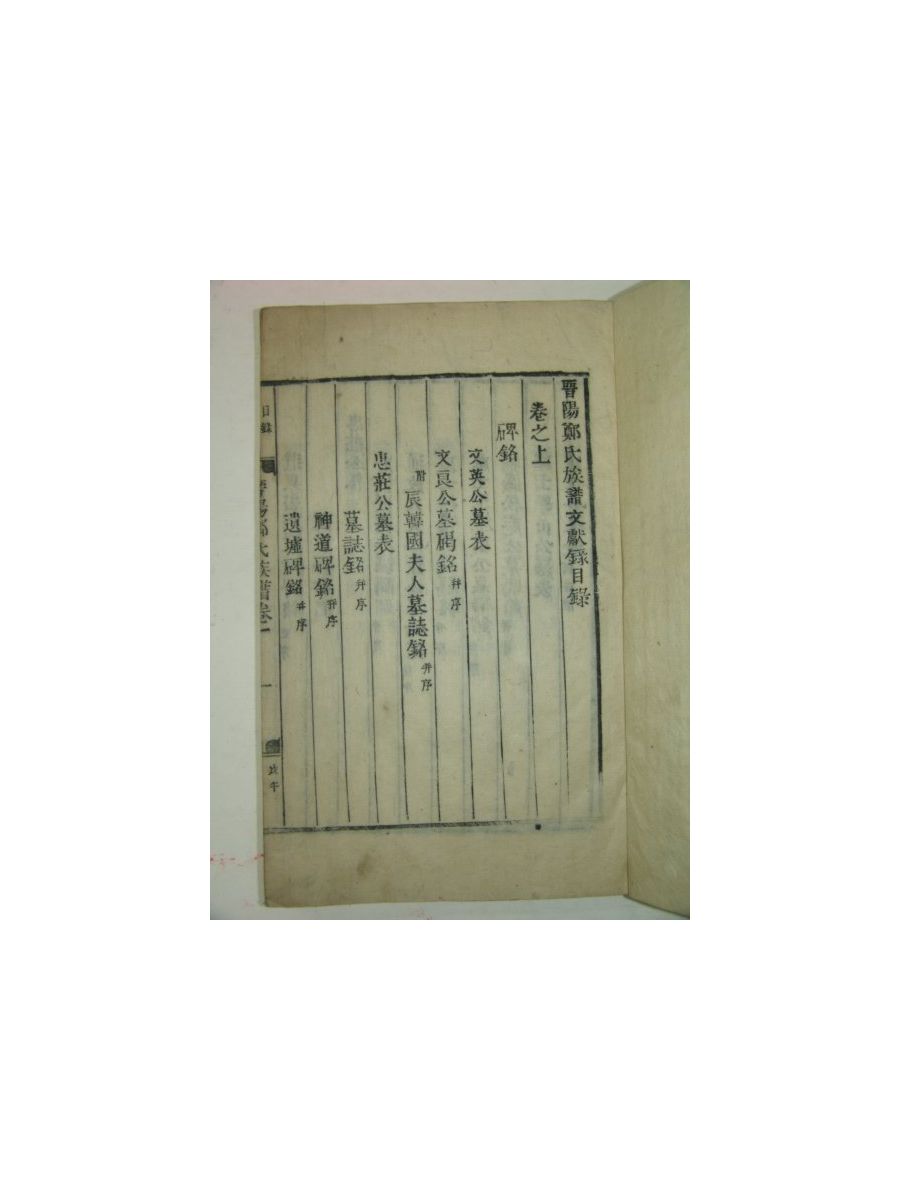 晋陽鄭氏族譜文獻錄目錄
卷之上
碑銘
文英公墓表
文良公墓碣銘 幷序
附 辰韓國夫人墓誌銘 幷序
忠莊公墓表
墓誌銘 幷序
神道碑銘 幷序
遺墟碑銘 幷序
目錄
晋陽鄭氏族譜卷一
一